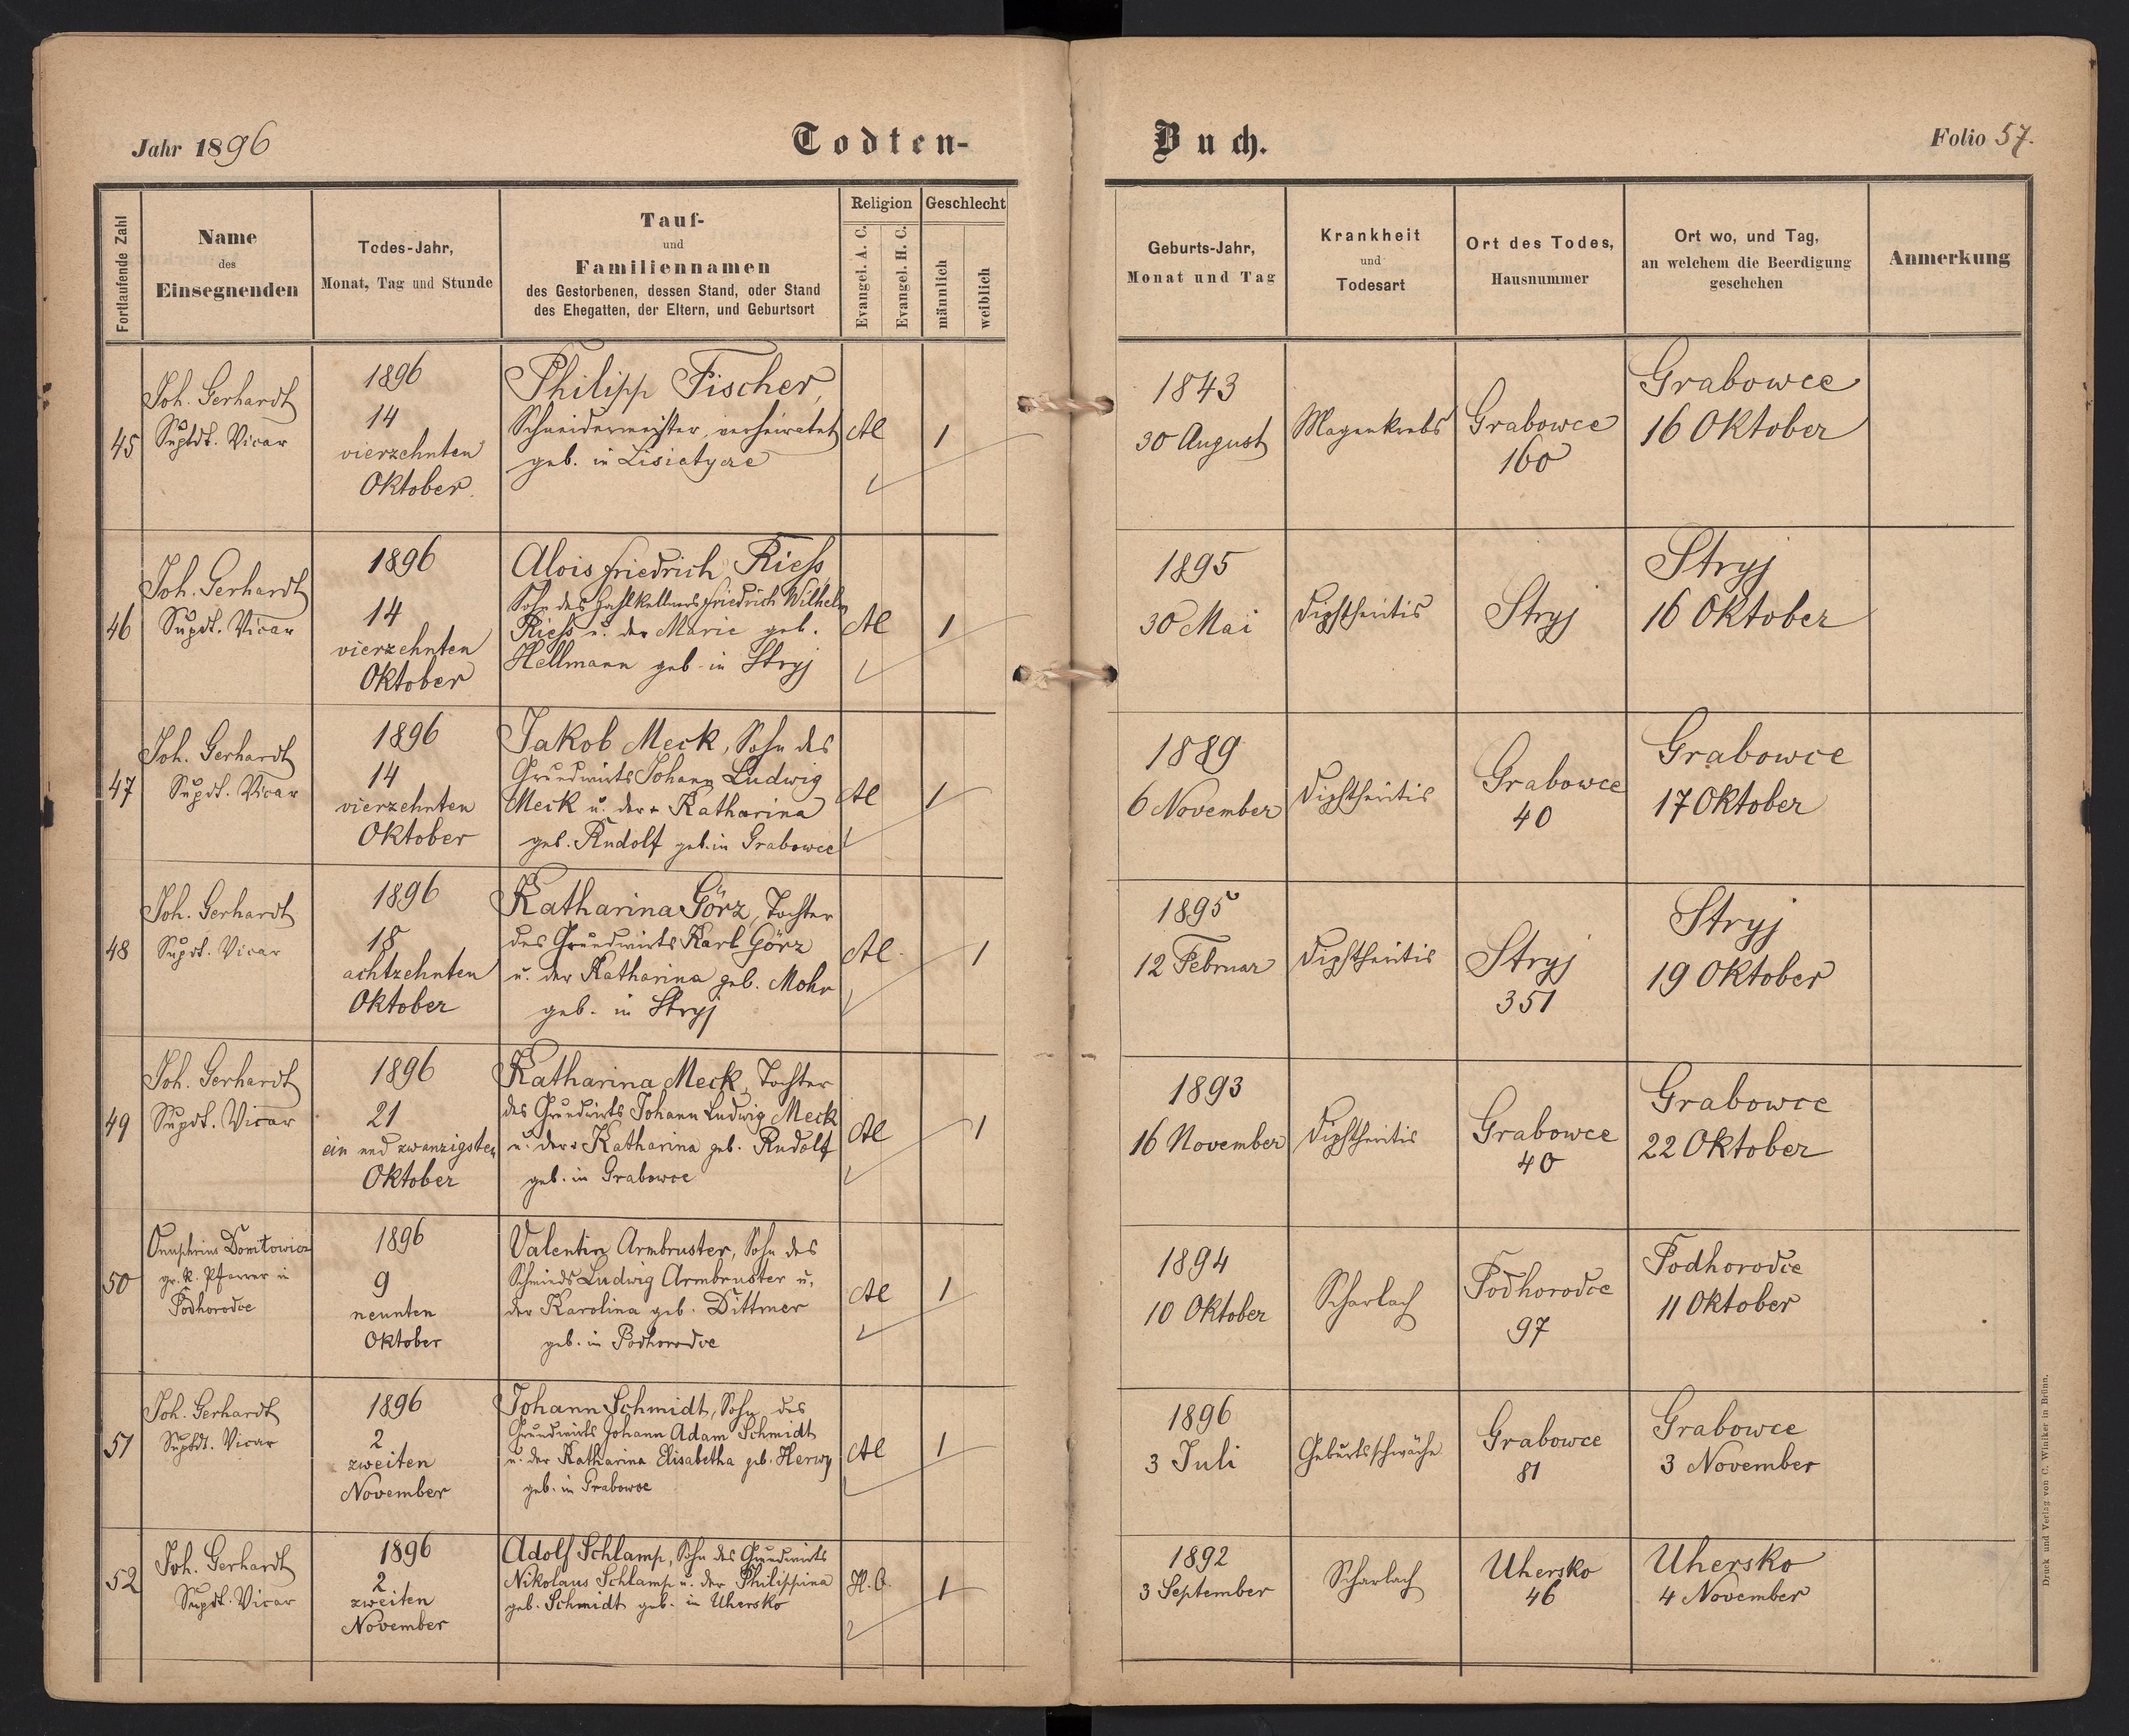 Jahr 1896
Todten-
Buch.
Folio 57.
Fortlaufende Zahl
Name
des
Einsegnenden
Todes-Jahr,
Monat, Tag und Stunde
Tauf-
und
Familiennamen
des Gestorbenen, dessen Stand, oder Stand
des Ehegatten, der Eltern, und Geburtsort
Religion
Evangel. A. C.
Evangel. H. C.
Geschlecht
männlich
weiblich
Geburts-Jahr,
Monat und Tag
Krankheit
und
Todesart
Ort des Todes,
Hausnummer
Ort wo, und Tag,
an welchem die Beerdigung
geschehen
Anmerkung
45
Joh. Gerhardt
Suptdt. Vicar
1896
14
vierzehnten
Oktober.
Philipp Fischer,
Schneidermeister, verheiratet
geb. in
1
1843
30 August
Magenkrebs
Grabowce
160
Grabowce
16 Oktober
46
Joh. Gerhardt
Supdt. Vicar
1896
14
vierzehnten
Oktober
Alois Friedrich Rieß,
Sohn des Zahlkellners Friedrich Wilhelm
Rieß u. der Marie geb.
Hellmann geb. in Stryj
1
1895
30 Mai
Diphtheritis
Stryj
Stryj
16 Oktober
47
Joh. Gerhardt
Supdt. Vicar
1896
14
vierzehnten
Oktober
Jakob Meck, Sohn des
Grundwirts Johann Ludwig
Meck u. der Katharina
geb. Rudolf geb. in Grabowce
1
1889
6 November
Diphtheritis
Grabowce
40
Grabowce
17 Oktober
48
Joh. Gerhardt
Supdt. Vicar
1896
18
achtzehnten
Oktober
Katharina Görz, Tochter
des Grundwirts Karl Görz
u. der Katharina geb. Mohr
geb. in Stryj
1
1895
12 Februar
Diphtheritis
Stryj
351
Stryj
19 Oktober
49
Joh. Gerhardt
Supdt. Vicar
1896
21
ein und zwanzigsten
Oktober
Katharina Meck, Tochter
des Grundwirts Johann Ludwig Meck
u. der Katharina geb. Rudolf
geb. in Grabowce
1
1893
16 November
Diphtheritis
Grabowce
40
Grabowce
22 Oktober
50
gr. k. Pfarrer in
Podhorodce
1896
9
neunten
Oktober
Valentin Armbruster, Sohn des
Schmieds Ludwig Armbruster u.
der Karolina geb. Dittmer
geb. in Podhorodce
1
1894
10 Oktober
Scharlach
Podhorodce
97
Podhorodce
11 Oktober
51
Joh. Gerhardt
Suptdt. Vicar
1896
2
zweiten
November
Johann Schmidt, Sohn des
Grundwirts Johann Adam Schmidt
u. der Katharina Elisabetha geb. Herwy
geb. in Grabowce
1
1896
3 Juli
Geburtsschwäche
Grabowce
81
Grabowce
3 November
52
Joh. Gerhardt
Supdt. Vicar
1896
2
zweiten
November
Adolf Schlamp, Sohn des Grundwirts
Nikolaus Schlamp u. der Philippina
geb. Schmidt geb. in Uhersko
H. C.
1
1892
3 September
Scharlach
Uhersko
46
Uhersko
4 November
Druck und Verlag von C. Winiker in Brünn.